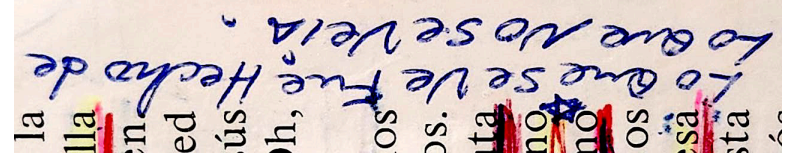 Lo Que Se Ve Fue Hecho de
Lo Que No Se Veía.
la
lla
en
ed
sús
Oh,
os
os.
uta
no
no
os
esa
sta